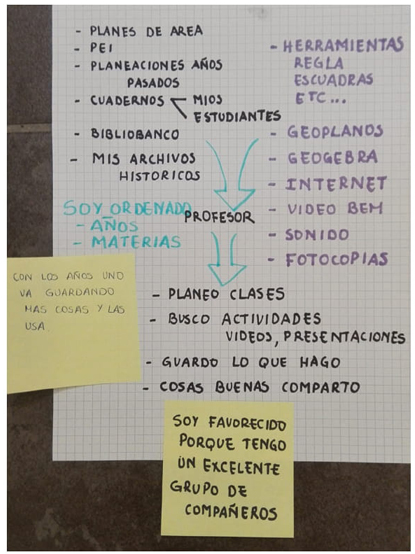 - PLANES DE AREA
- PEI
- PLANEACIONES AÑOS
PASADOS
- CUADERNOS < MIOS
ESTUDIANTES
- BIBLIOBANCO
- MIS ARCHIVOS
HISTORICOS
- HERRAMIENTAS
REGLA
ESCUADRAS
ETC...
- GEOPLANOS
- GEOGEBRA
- INTERNET
- VIDEO BEM
- SONIDO
- FOTOCOPIAS
SOY ORDENADO
- AÑOS
- MATERIAS
PROFESOR
- PLANEO CLASES
- BUSCO ACTIVIDADES
VIDEOS, PRESENTACIONES
- GUARDO LO QUE HAGO
- COSAS BUENAS COMPARTO
CON LOS AÑOS UNO
VA GUARDANDO
MAS COSAS Y LAS
USA.
SOY FAVORECIDO
PORQUE TENGO
UN EXCELENTE
GRUPO DE
COMPAÑEROS